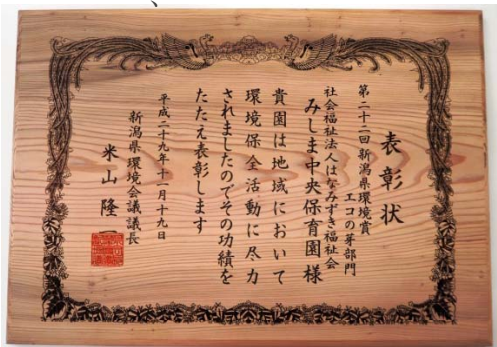 表彰状
第二十二回新潟県環境賞
エコの芽部門
社会福祉法人はなみずき福祉会
みしま中央保育園様
貴園は地域において
環境保全活動に尽力
されましたのでその功績を
たたえ表彰します
平成二十九年十一月十九日
新潟県環境会議議長
米山隆一